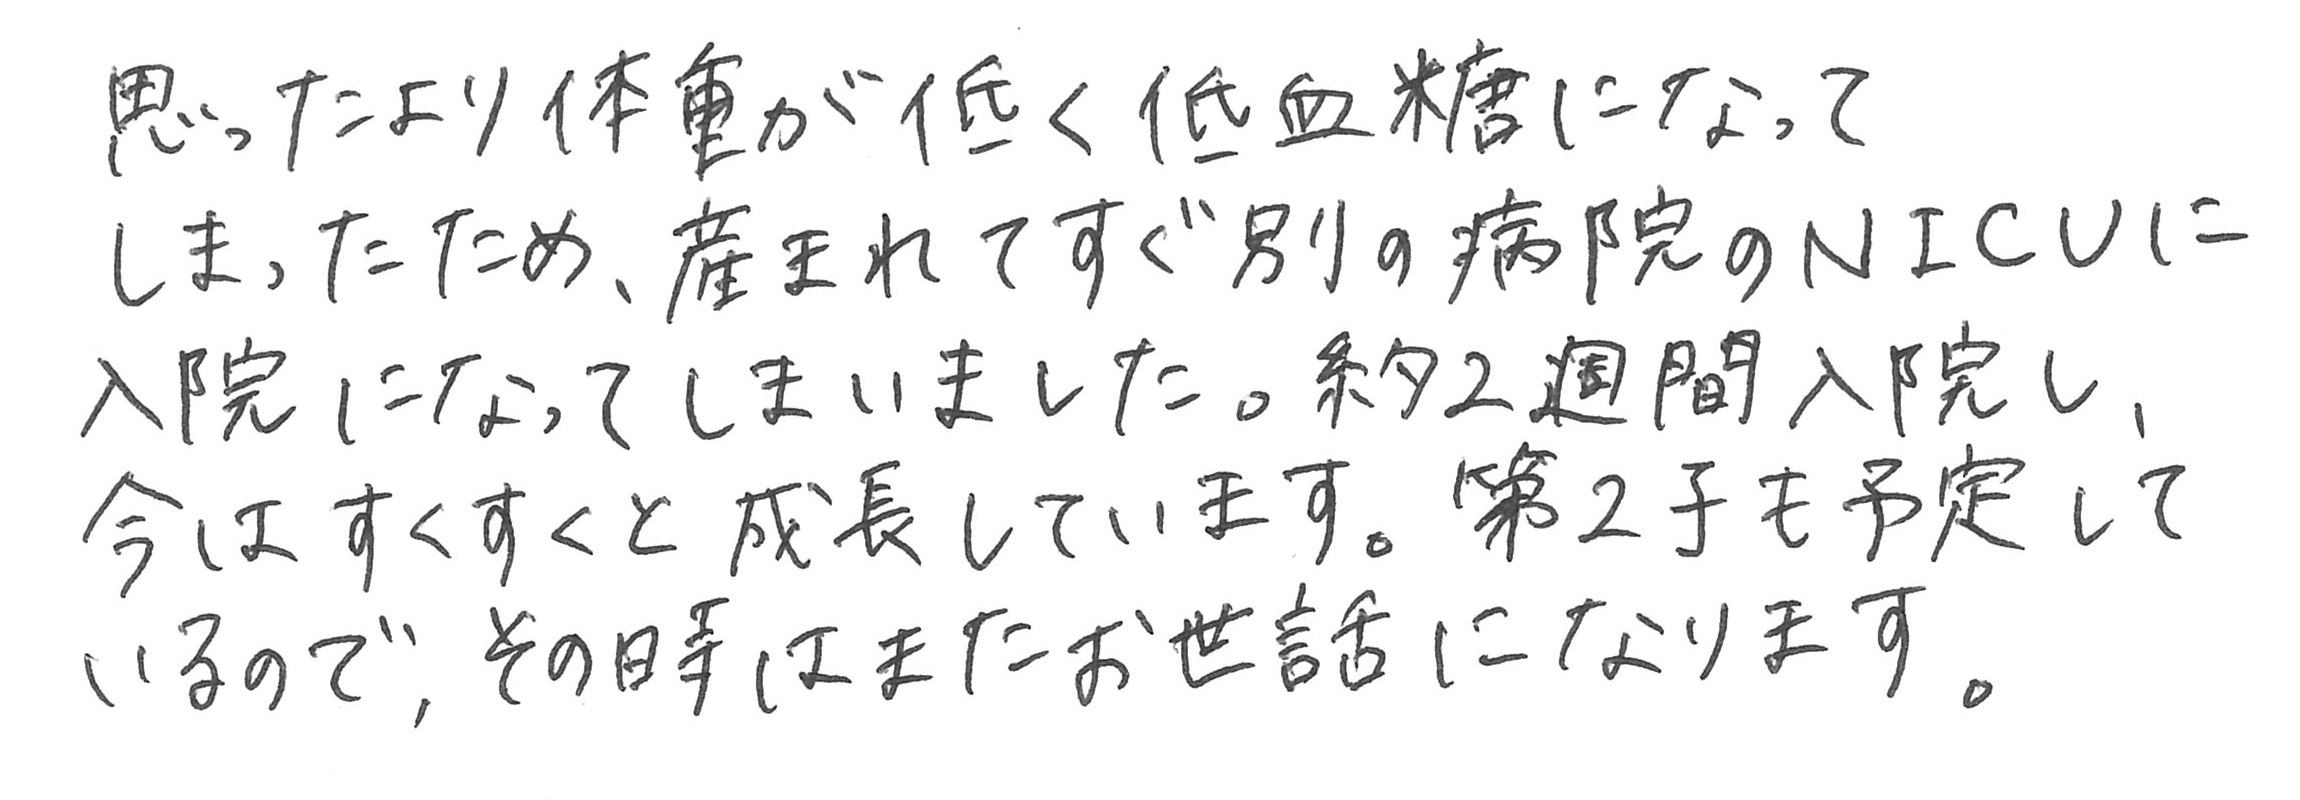 思ったより体重が低く低血糖になって
しまったため、産まれてすぐ別の病院のNICUに
入院になってしまいました。約2週間入院し、
今はすくすくと成長しています。第2子も予定して
いるので、その時はまたお世話になります。